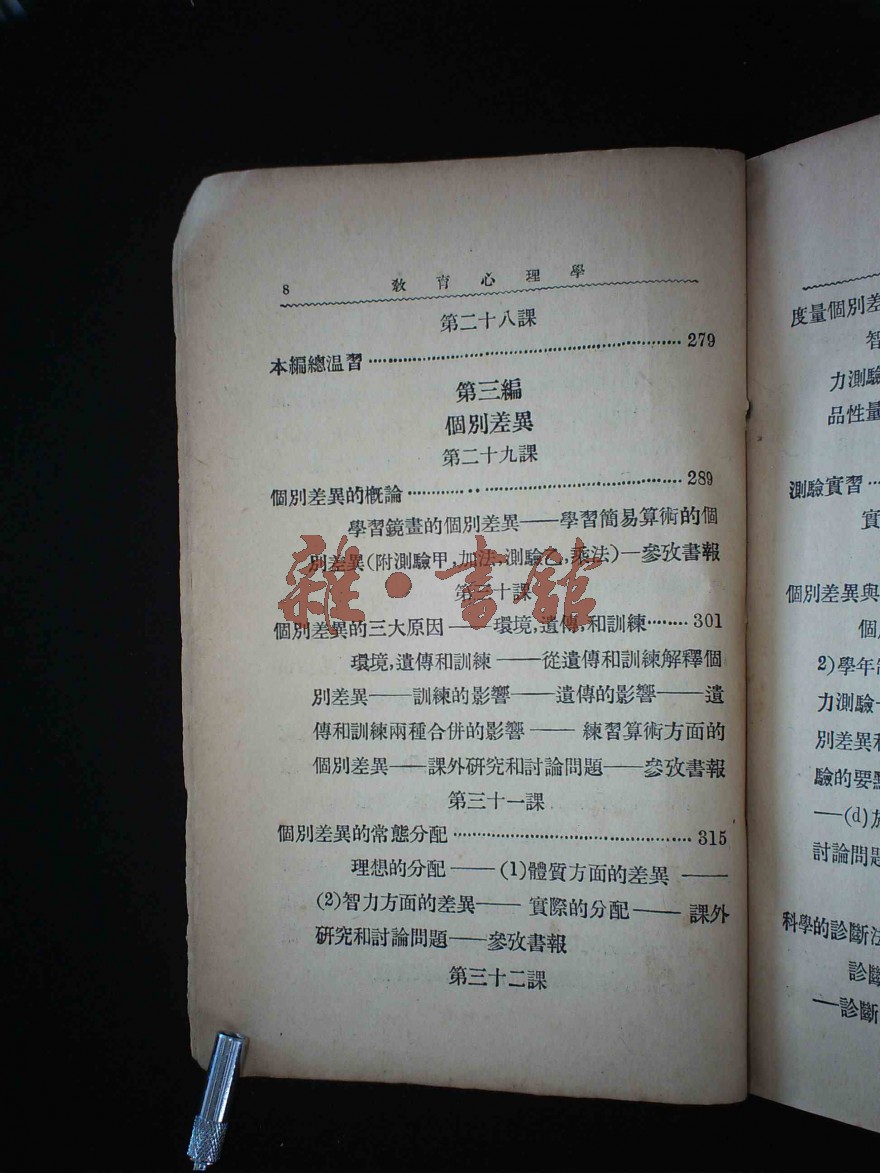 8 教育心理學
第二十八課
本編總温習……279
第三編
個別差異
第二十九課
個別差異的概論……289
學習鏡畫的個別差異——學習簡易算術的個
別差異(附測驗甲,加法,測驗乙,乘法)—參攷書報
第三十課
個別差異的三大原因——環境,遺傳,和訓練……301
環境,遺傳和訓練——從遺傳和訓練解釋個
別差異——訓練的影響——遺傳的影響——遺
傳和訓練兩種合併的影響——練習算術方面的
個別差異——課外研究和討論問題——參攷書報
第三十一課
個別差異的常態分配……315
理想的分配——(1)體質方面的差異——
(2)智力方面的差異——實際的分配——課外
研究和討論問題——參攷書報
第三十二課
雜·書館
度量個別差
智
力測驗
品性量
測驗實習…
實
個別差異與
個
2)學年
力測驗
別差異和
驗的要點
—(d)
討論問題
科學的診斷法
診斷
—診斷